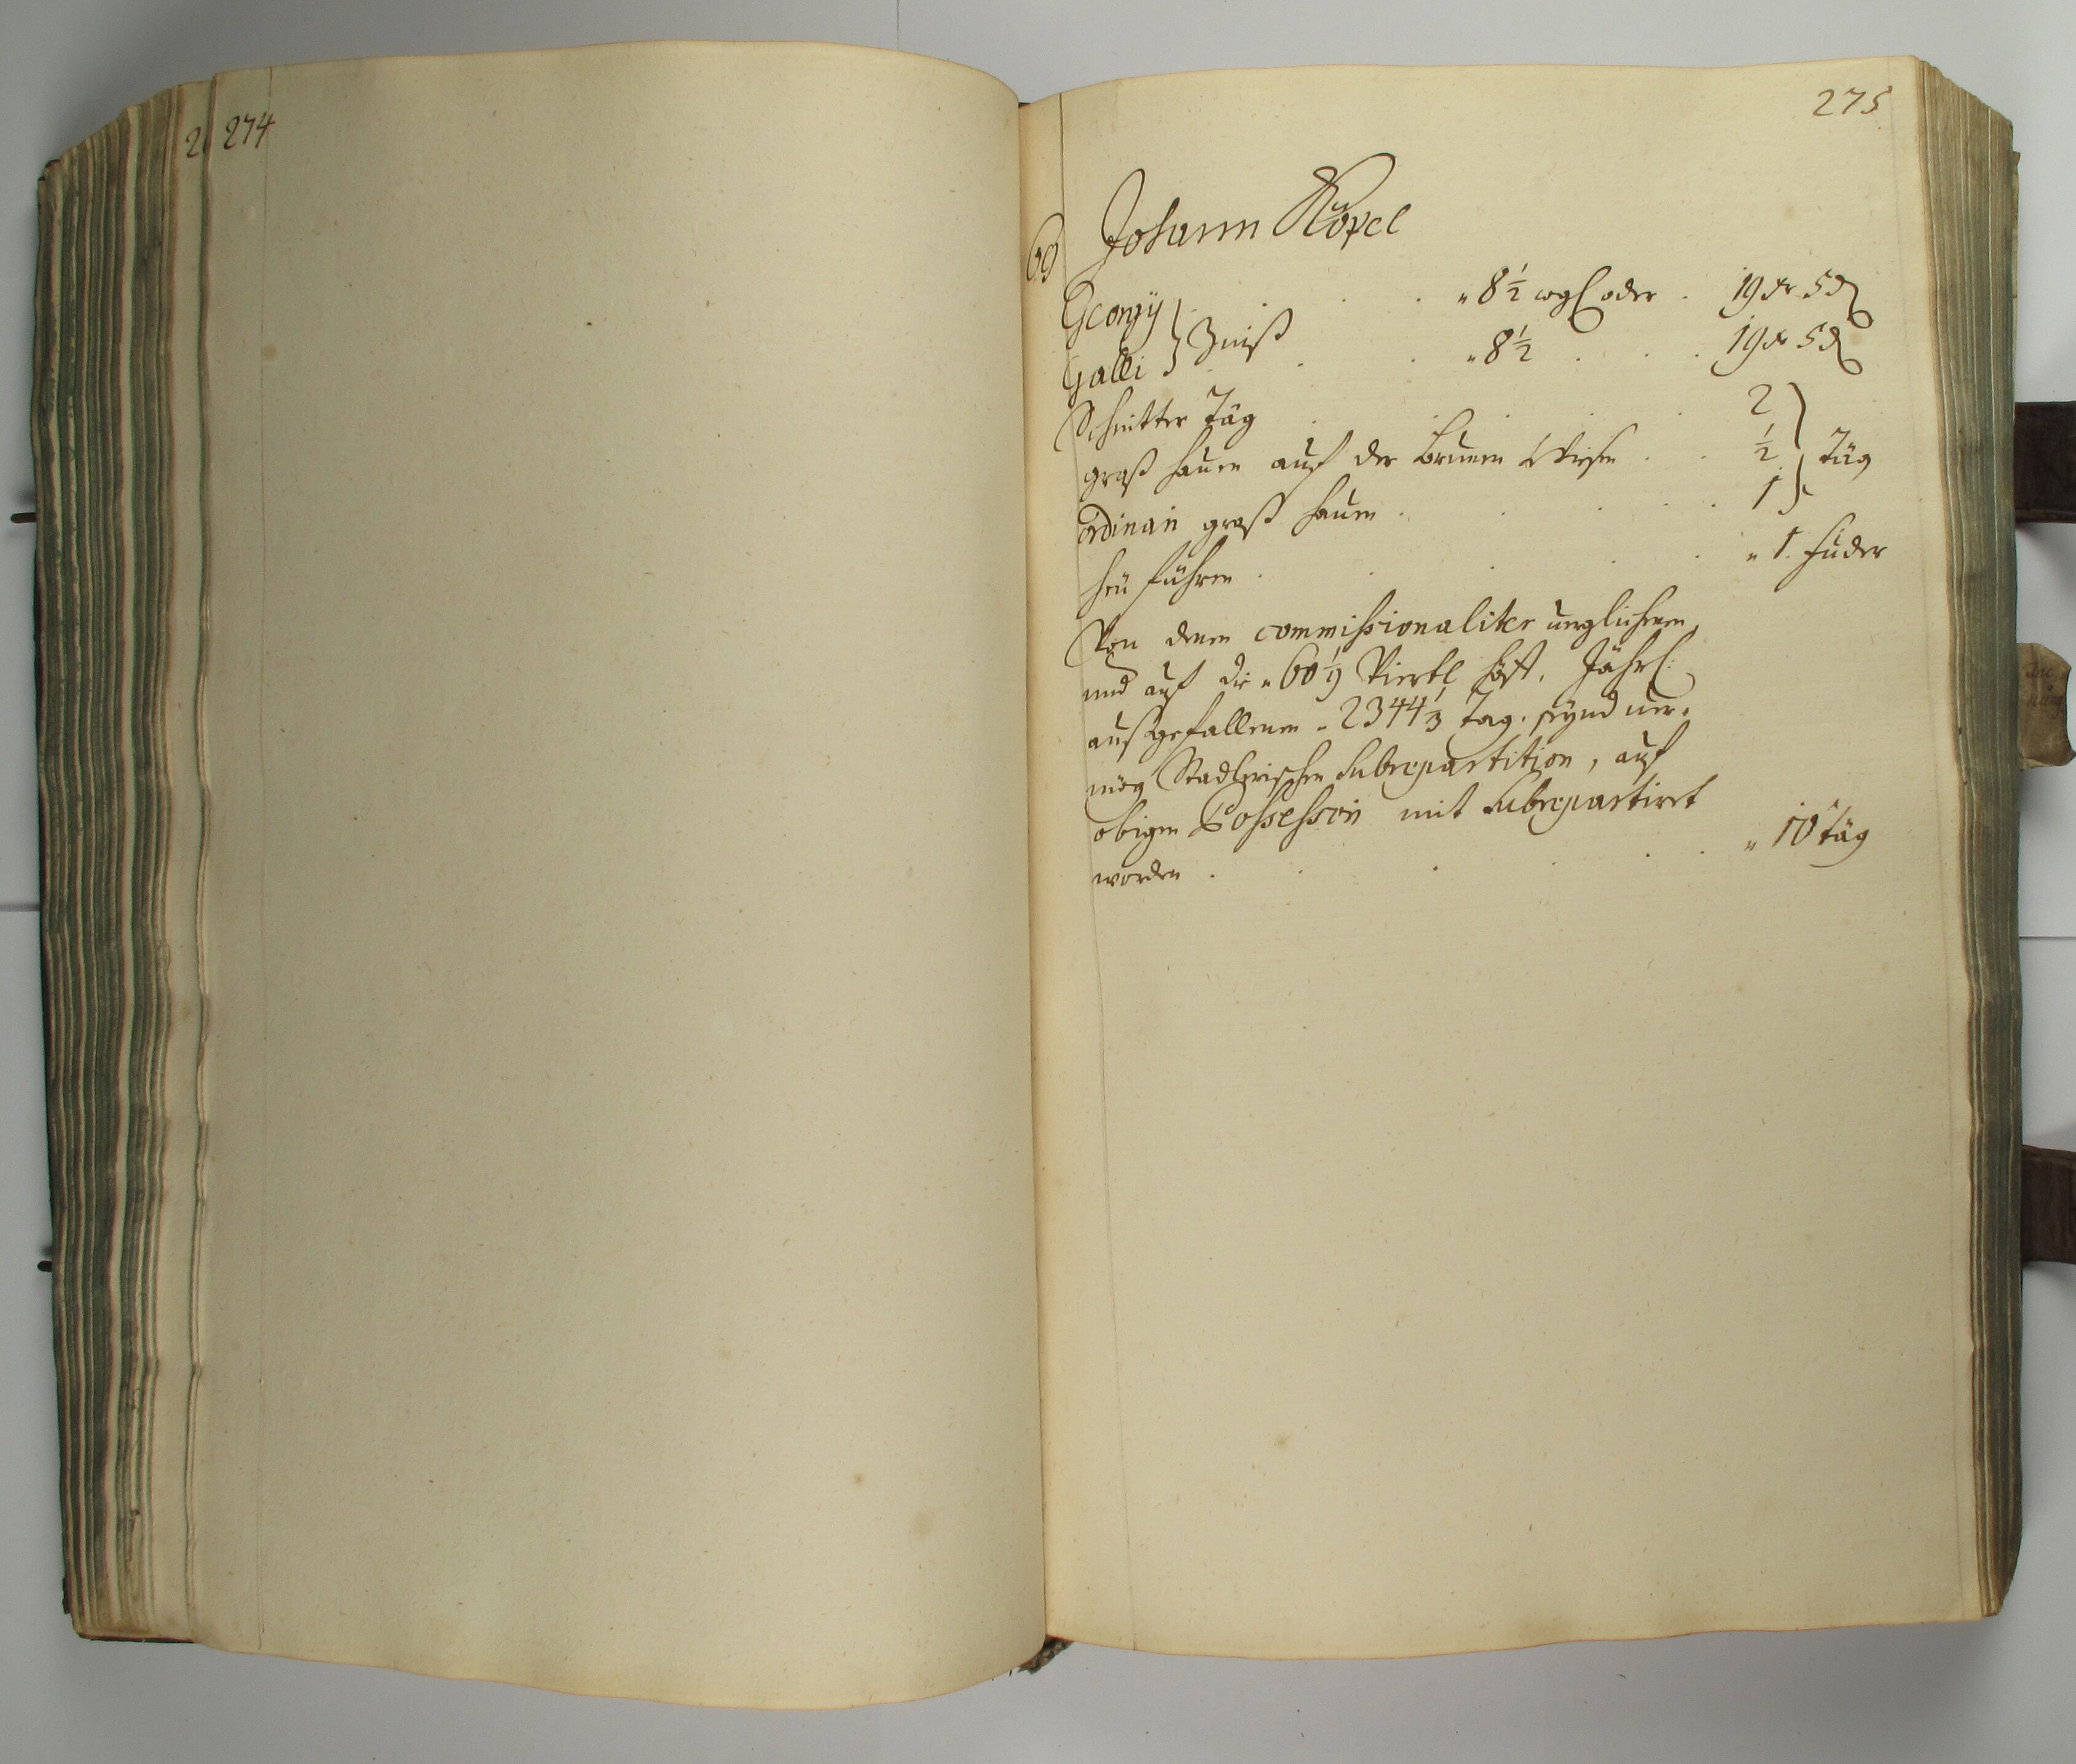 274
275
69
Johann Köpel
Georgÿ
Zinß
„ 8½ wgl oder . 19 xr 5 d
Galli
„ 8½ . . . 19 xr 5 d
Schnitter Täg . . . . 2
graß hauen auf der Brunen Wiesen . . ½ Täg
ordinari graß hauen . . . . 1
heü führen . . . . „ 1. fuder
Von denen commissionaliter verglichenen,
und auf die „ 60 1/9 Viertl höff, Jährl:
außgefallenen „ 2344 1/3 Tag. seÿnd ver-
mög Stadlerischen Subrepartition, auf
obigen Possessori mit subrepartiret
worden . . . . . „ 10 täg